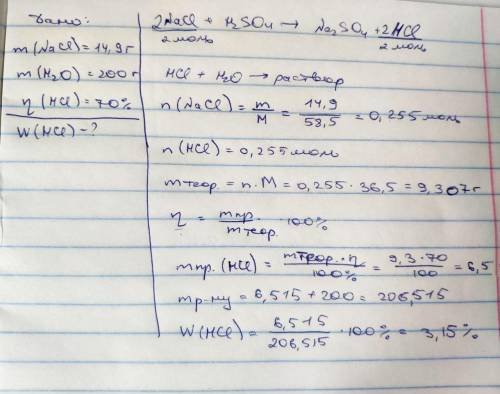 Дано:
m(NaCl) = 14,9г
m(H₂O) = 200г
η(HCl) = 70%
W(HCl) - ?
2NaCl + H₂SO₄ → Na₂SO₄ + 2HCl
2 моль 2 моль
HCl + H₂O → раствор
n(NaCl) = m/M = 14,9/58,5 = 0,255 моль
n(HCl) = 0,255 моль
mтеор. = n · M = 0,255 · 36,5 = 9,307г
η = mпр./mтеор. · 100%
mпр.(HCl) = mтеор. · η/100% = 9,3 · 70/100 = 6,5
mр-ну = 6,515 + 200 = 206,515
W(HCl) = 6,515/206,515 · 100% = 3,15%